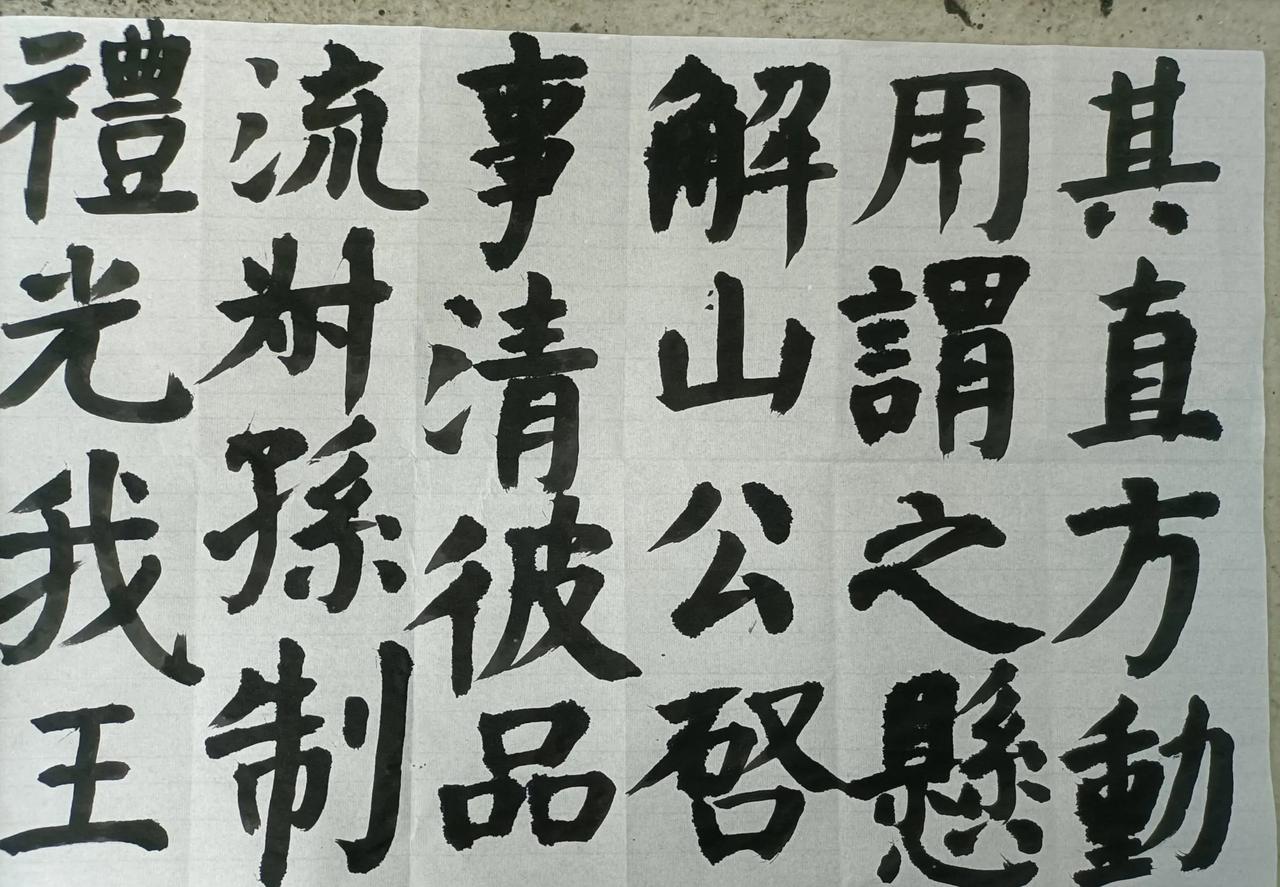 其直方動
用謂之懸
解山公啓
事清彼品
流尌孫制
禮光我王